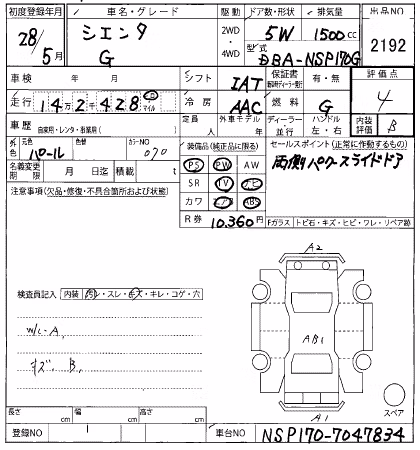 初度登録年月 車名・グレード 駆動 ドア数・形状 排気量 出品NO
28/5月 シエンタ G 2WD・4WD 5W 1500cc 2192
型式 DBA-NSP170G
車検 年 月 シフト IAT 保証書 有・無 評価点
走行 14万2千428 マイル 冷房 AAC 燃料 G 4
車歴 自家用・レンタ・事業用( ) 定員 人 外車モデル 年 ディーラー・並行 ハンドル 左・右 内装評価 B
外色 元色 パール 色替 カラーNO 070 装備品(純正品に限る) セールスポイント(正常に作動するもの)
名義変更期限 月 日迄 積載 t PS PW AW 両側パワースライドドア
注意事項(欠品・修復・不具合箇所および状態) SR TV ナビ
カワ エアB ABS
R券 10,360円 Fガラス トビ石・キズ・ヒビ・ワレ・リペア跡
A2
検査員記入 内装 汚・スレ・キズ・キレ・コゲ・穴
W/C-A、
キズ、B、
AB1
スペア
A1
長さ cm 幅 cm 高さ cm
登録NO 車台NO NSP170-7047834